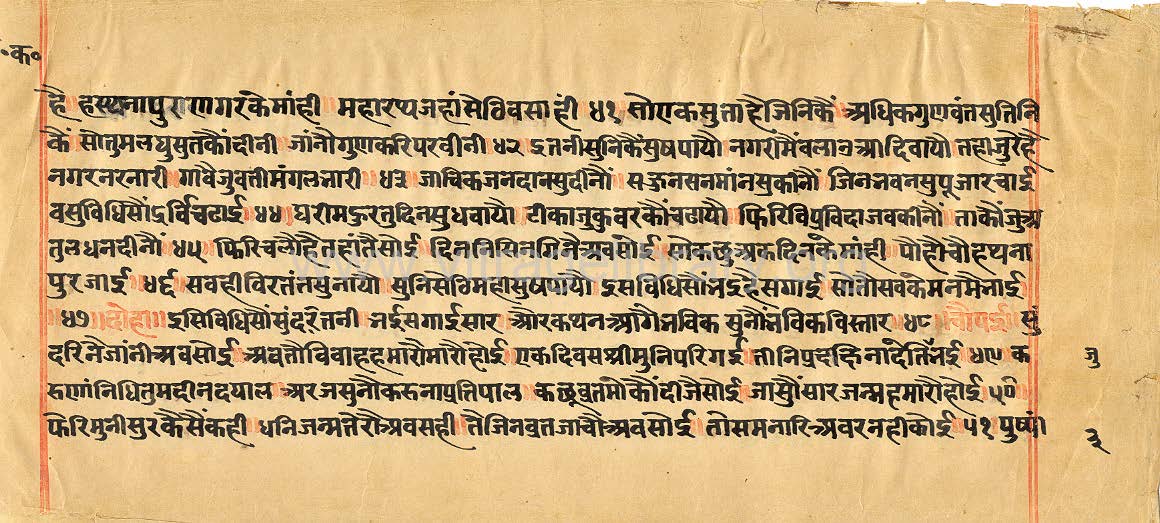 ॰क॰
है हस्यनापुरणगरकैमांही ॥ महारण्यजहांसेठिवसाहीं ॥ ४१ ॥ सोएकसुताहैजिनिकैं ॥ अधिकगुणवंतसुतिनि
कैं ॥ सोतुमलघुसुतकौंदीनी ॥ जांनौगुणकरिपरवीनी ॥ ४२ ॥ इतनीसुनिकैंसुषपायौ ॥ नगरांमैं ॥ तहाजुरेहै
नगरनरनारी ॥ गांवैजुवतीमंगलचारी ॥ ४३ ॥ जाचिकजनदानसुदीनौं ॥ सज्जनसनमांनसुकीनौं ॥ जिनभवनसुपूजारचाई ॥
वसुविधिसौंदर्विचढाई ॥ ४४ ॥ घरीमहुरतुदिनसुधवायौ ॥ टीकाजुकुवरकौंचढायौ ॥ फिरिविप्रविदाजवकीनौं ॥ ताकौंजुअ
तुलधनदीनौं ॥ ४५ ॥ फिरिचलौहैतहांतैसोई ॥ दिननिसिनगिनैअवसोई ॥ सोकछुअकदिनकेमांही ॥ पौहोचौहथना
पुरजाई ॥ ४६ ॥ सवहीविरतंतसुनायौ ॥ सुनिसेठिमहीसुषपायौ ॥ इसविधिसौंभईहैसगाई ॥ सोतौसवकेमनमैंभाई ॥
॥ ४७ ॥ दोहा ॥ इसिविधिसौंसुंदरतनी ॥ भईसगाईसार ॥ औरकथनआगैभविक ॥ सुनौंभविकविस्तार ॥ ४८ ॥ चौपई ॥ सुं
दरिनैजांनीअवसोई ॥ अवतौविवाहहमारौहोई ॥ एकदिवसश्रीमुनिपरिगई ॥ ४९ ॥ क
रुणांनिधितुमदीनदयाल ॥ अरजसुनौकरुनाप्रतिपाल ॥ कछुव्रतमोकौंदीजैसोई ॥ जासौंसारजन्महमारौहोई ॥ ५० ॥
फिरिमुनीसुरकैसैंकही ॥ धनिजन्मतेरौअवसही ॥ तैजिनव्रतजाचौअवसोई ॥ तोसमनारिअवरनहीकोई ॥ ५१ ॥ पुष्पां
जु
३
www.vitragelibrary.org